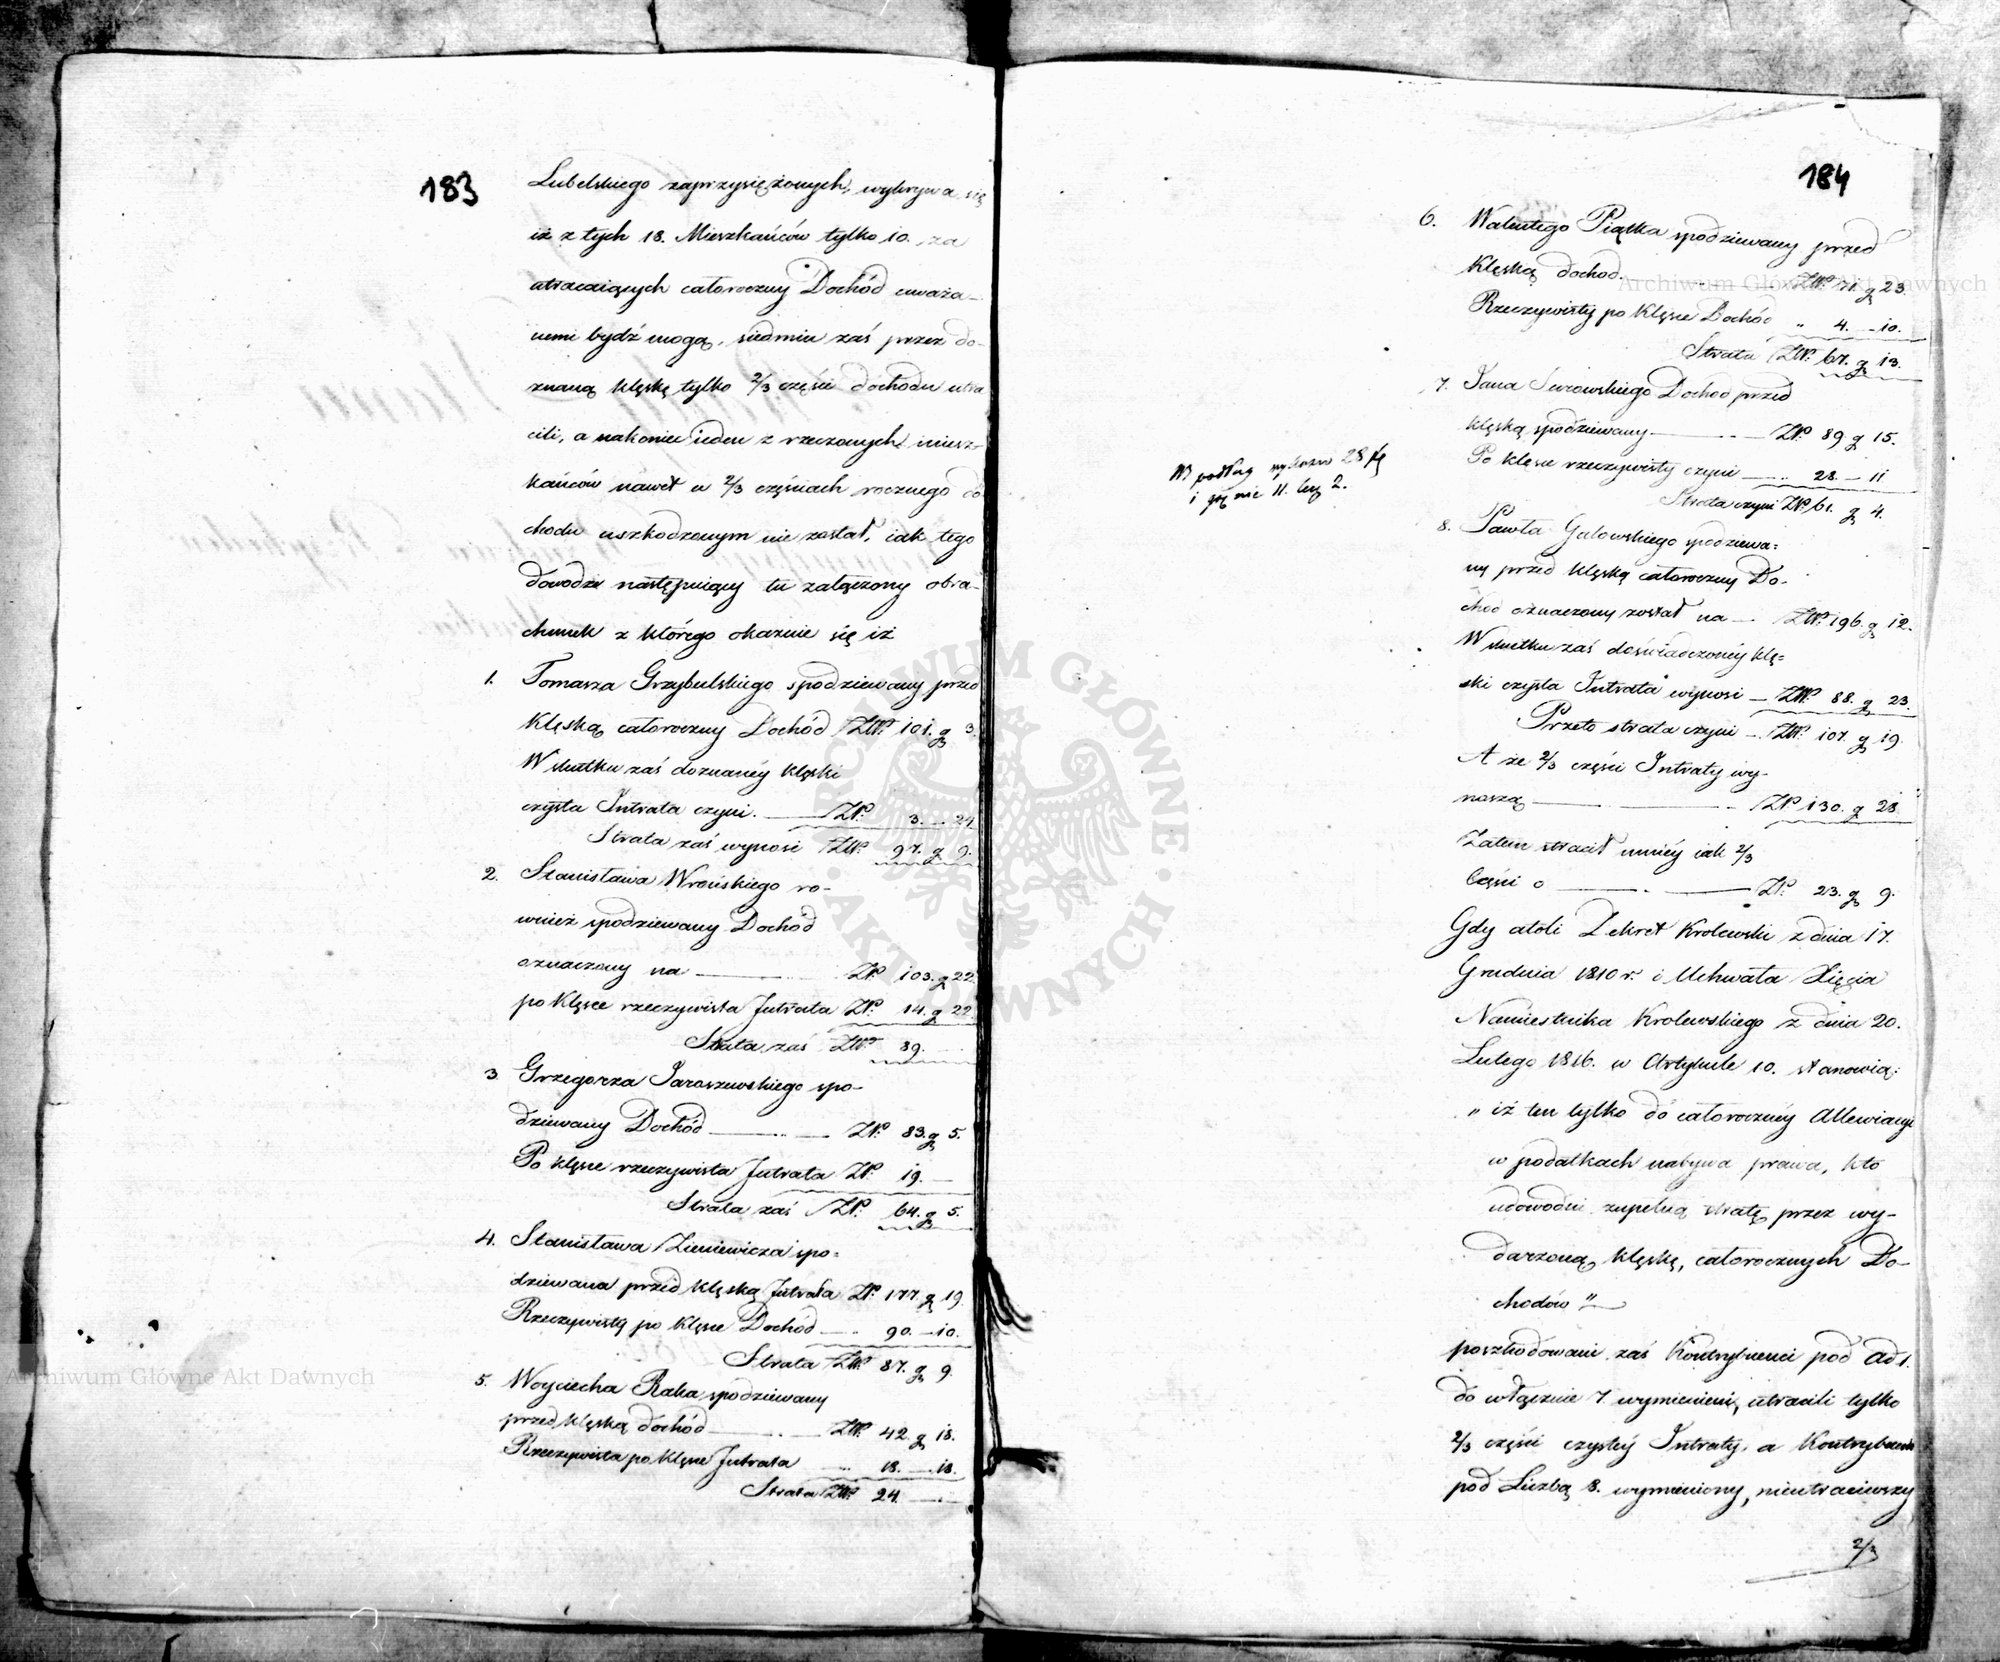 183
Lubelskiego zaprzysiężonych, wykrywa się
iż z tych 18. Mieszkańców tylko 10. za
utracaiących całoroczny Dochód uważa-
nemi bydź mogą, siedmiu zaś przez do-
znaną klęskę tylko 2/3 części dochodu utra
cili, a nakoniec ieden z rzeczonych miesz-
kańców nawet w 2/3 częściach rocznego do
chodu uszkodzonym nie został, iak tego
dowodzi następuiący tu załączony obra-
chunek z którego okazuie się iż
1. Tomasza Grzybulskiego spodziewany przed
Klęską całoroczny Dochód ZłP. 101. g 3.
W skutku zaś doznanéy klęski
czysta Intrata czyni. ZłP. 3. — 24.
Strata zaś wynosi ZłP. 97. g 9.
2. Stanisława Wrońskiego ro-
wnież spodziewany Dochód
oznaczony na — ZłP. 103. g 22.
po Klęsce rzeczywista Intrata ZłP. 14. g 22.
Strata zaś ZłP. 89.
3. Grzegorza Jaroszewskiego spo-
dziewany Dochód — ZłP. 83. g 5.
Po klęsce rzeczywista Intrata ZłP. 19. —
Strata zaś ZłP. 64. g 5.
4. Stanisława Zieniewicza spo-
dziewana przed klęską Intrata ZłP. 177 g 19.
Rzeczywisty po Klęsce Dochód — 90. — 10.
Strata ZłP. 87. g 9.
5. Woyciecha Raka spodziewany
przed klęską dochód — ZłP. 42. g 18.
Rzeczywista po Klęsce Intrata — 18. — 18.
Strata ZłP. 24. —
184
6. Walentego Piątka spodziewany przed
Klęską dochod. ZłP. 71. g 23.
Rzeczywisty po Klęsce Dochód „ 4. — 10.
Strata ZłP. 67. g 13.
7. Jana Dochod przed
klęską spodziewany — ZłP. 89 g 15.
Po klęsce rzeczywisty czyni — 28. — 11
Strata czyni ZłP. 61. g 4.
podług wykazu 28
i nie 11. lecz 2.
8. Pawła Galowskiego spodziewa=
ny przed klęską całoroczny Do-
chód oznaczony został na — ZłP. 196. g 12.
W skutku zaś doświadczonéy klę=
ski czysta Intrata wynosi — ZłP. 88. g 23.
Przeto strata czyni — ZłP. 107. g 19.
A że 2/3 części Intraty wy-
noszą — ZłP. 130. g 28.
Zatem stracił mniéy iak 2/3
Części o — ZłP. 23. g 9.
Gdy atoli Dekret Krolewski z dnia 17.
Grudnia 1810 r. i Uchwała Xięcia
Namiestnika Krolewskiego z dnia 20.
Lutego 1816. w Artykule 10. stanowią:
„ iż ten tylko do całorocznéy Allewiacyi
w podatkach nabywa prawa, kto
udowodni zupełną stratę przez wy-
darzoną klęskę, całorocznych Do-
chodów "—
poszkodowani zaś Kontrybuenci pod ad 1.
do włącznie 7. wymienieni, utracili tylko
2/3 części czystéy Intraty, a Kontrybuent
pod Liczbą 8. wymieniony, nieutraciwszy
2/3
Archiwum Główne Akt Dawnych
Archiwum Główne Akt Dawnych
ARCHIWUM GŁÓWNE · AKT DAWNYCH ·